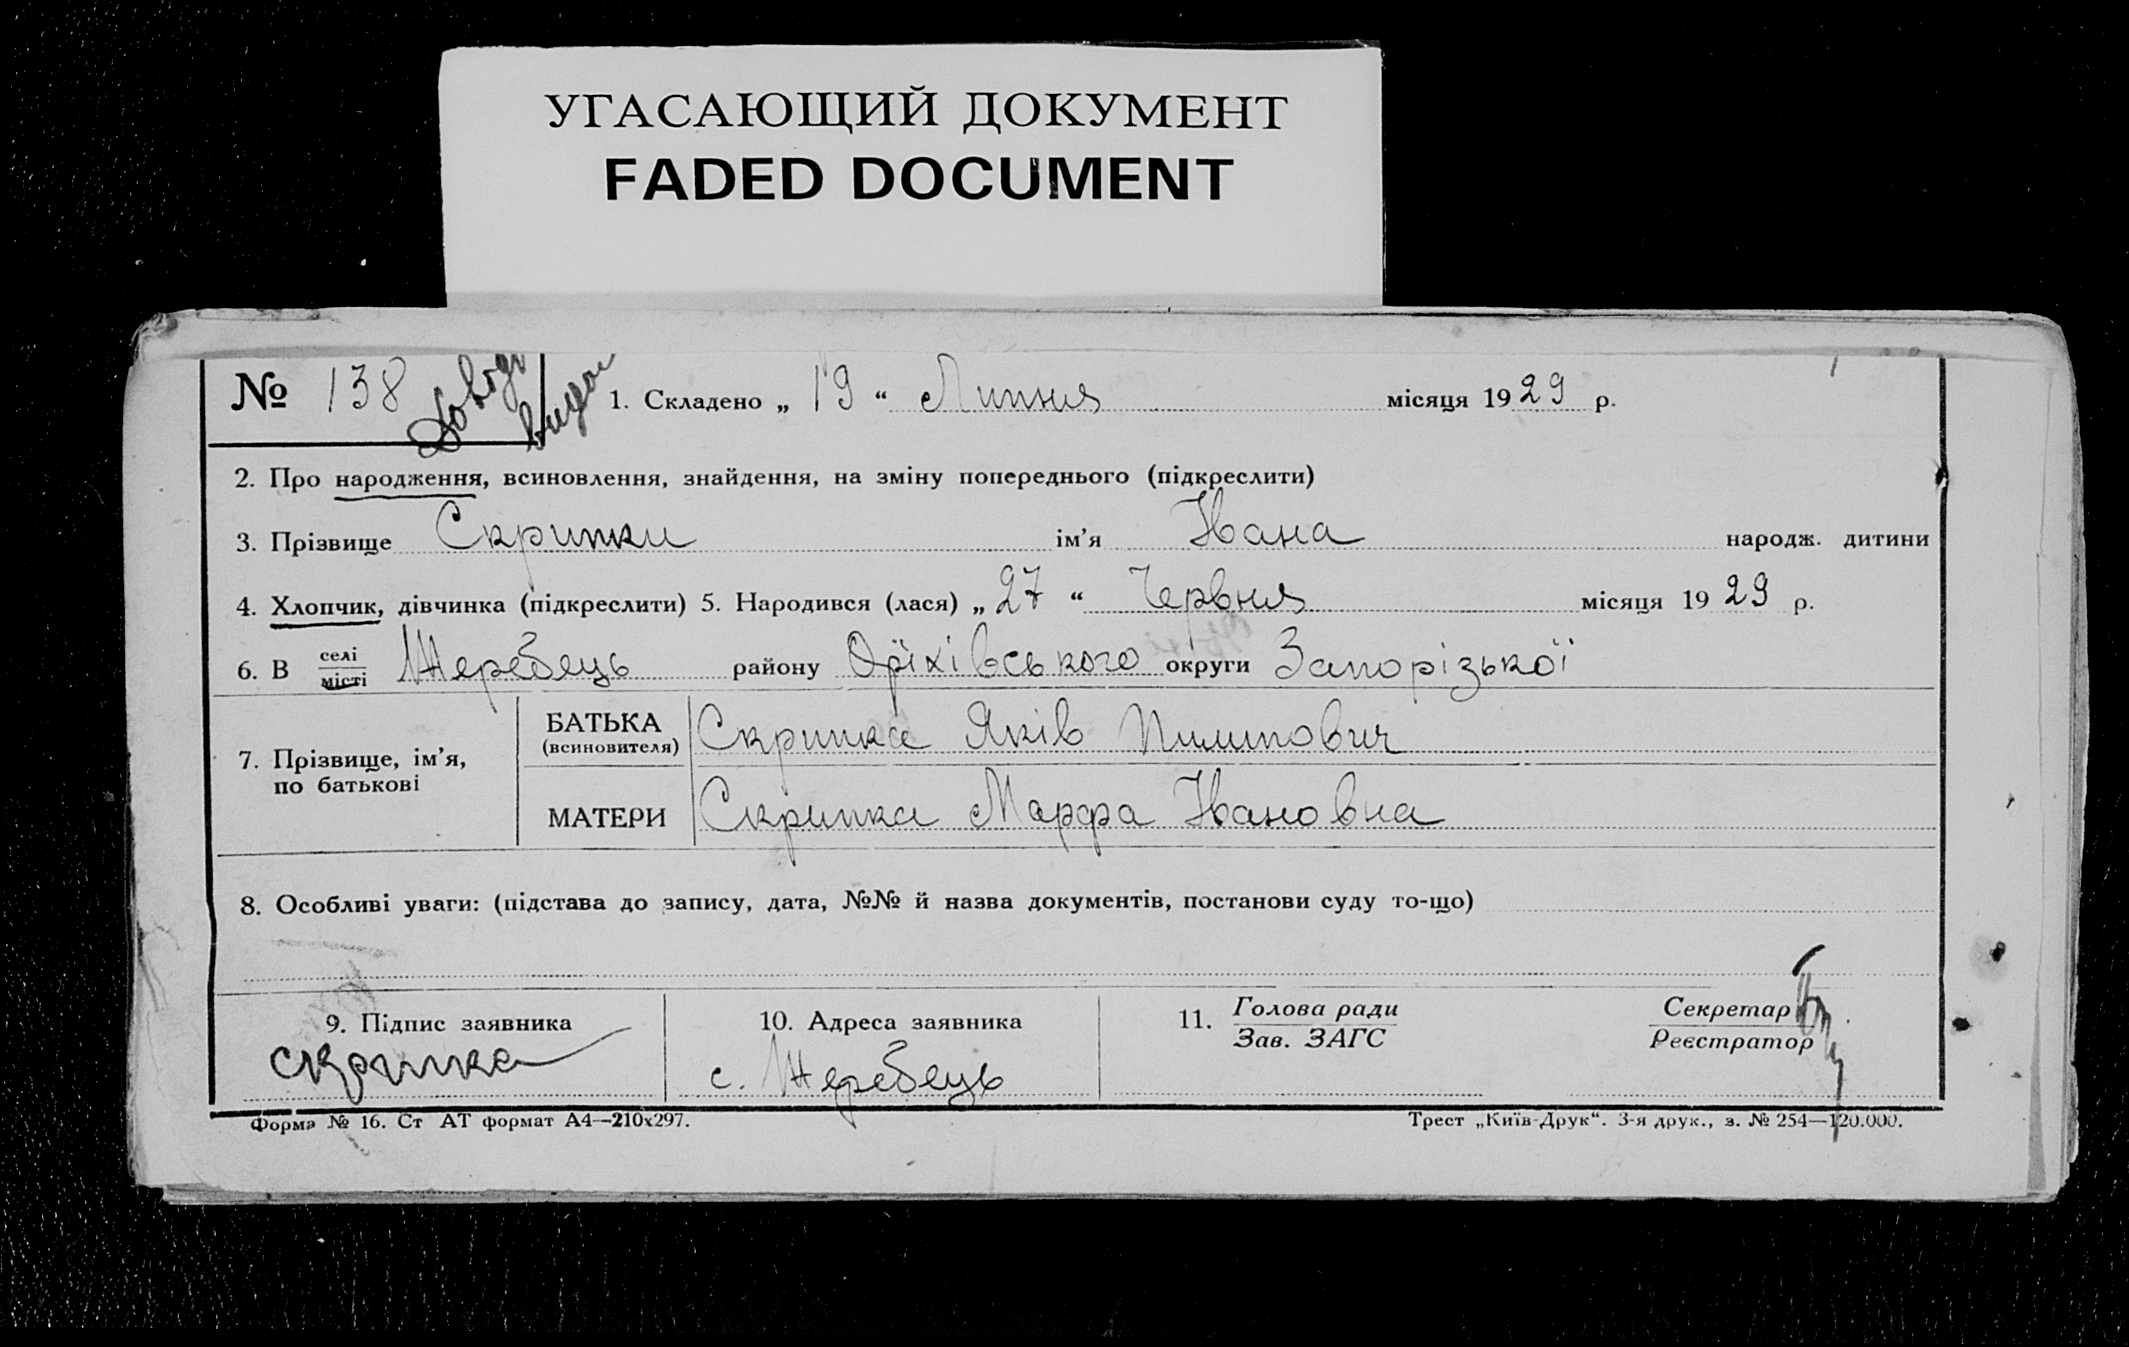 УГАСАЮЩИЙ ДОКУМЕНТ
FADED DOCUMENT
№ 138
1. Складено „ 19 “ Липня місяця 1929 р.
2. Про народження, всиновлення, знайдення, на зміну попереднього (підкреслити)
3. Прізвище Скрипки ім’я Івана народж. дитини
4. Хлопчик, дівчинка (підкреслити) 5. Народився (лася) „ 27 “ Червня місяця 1929 р.
6. В селі місті Жеребець району Оріхівського округи Запорізької
7. Прізвище, ім’я,
по батькові
БАТЬКА
(всиновителя)
Скрипка Яків Пилипович
МАТЕРИ
Скрипка Марфа Івановна
8. Особливі уваги: (підстава до запису, дата, №№ й назва документів, постанови суду то-що)
9. Підпис заявника
Скрипка
10. Адреса заявника
с. Жеребець
11. Голова ради
Зав. ЗАГС
Секретар
Реєстратор
Форма № 16. Ст АТ формат А4—210х297.
Трест „Київ-Друк“. 3-я друк., з. № 254—120.000.